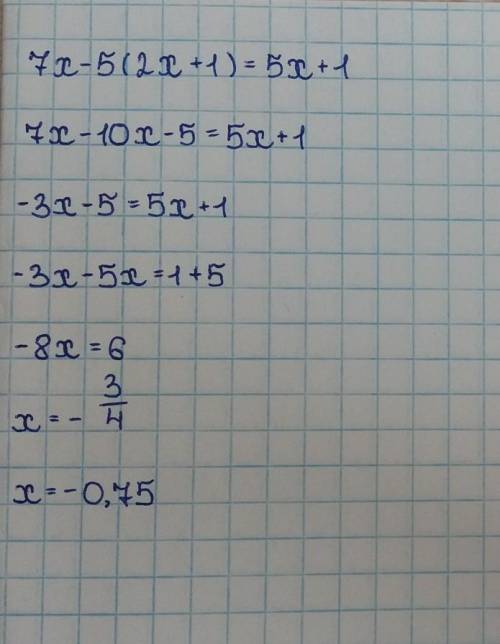 7x-5(2x+1)=5x+1
7x-10x-5=5x+1
-3x-5=5x+1
-3x-5x=1+5
-8x=6
x=-3/4
x=-0,75